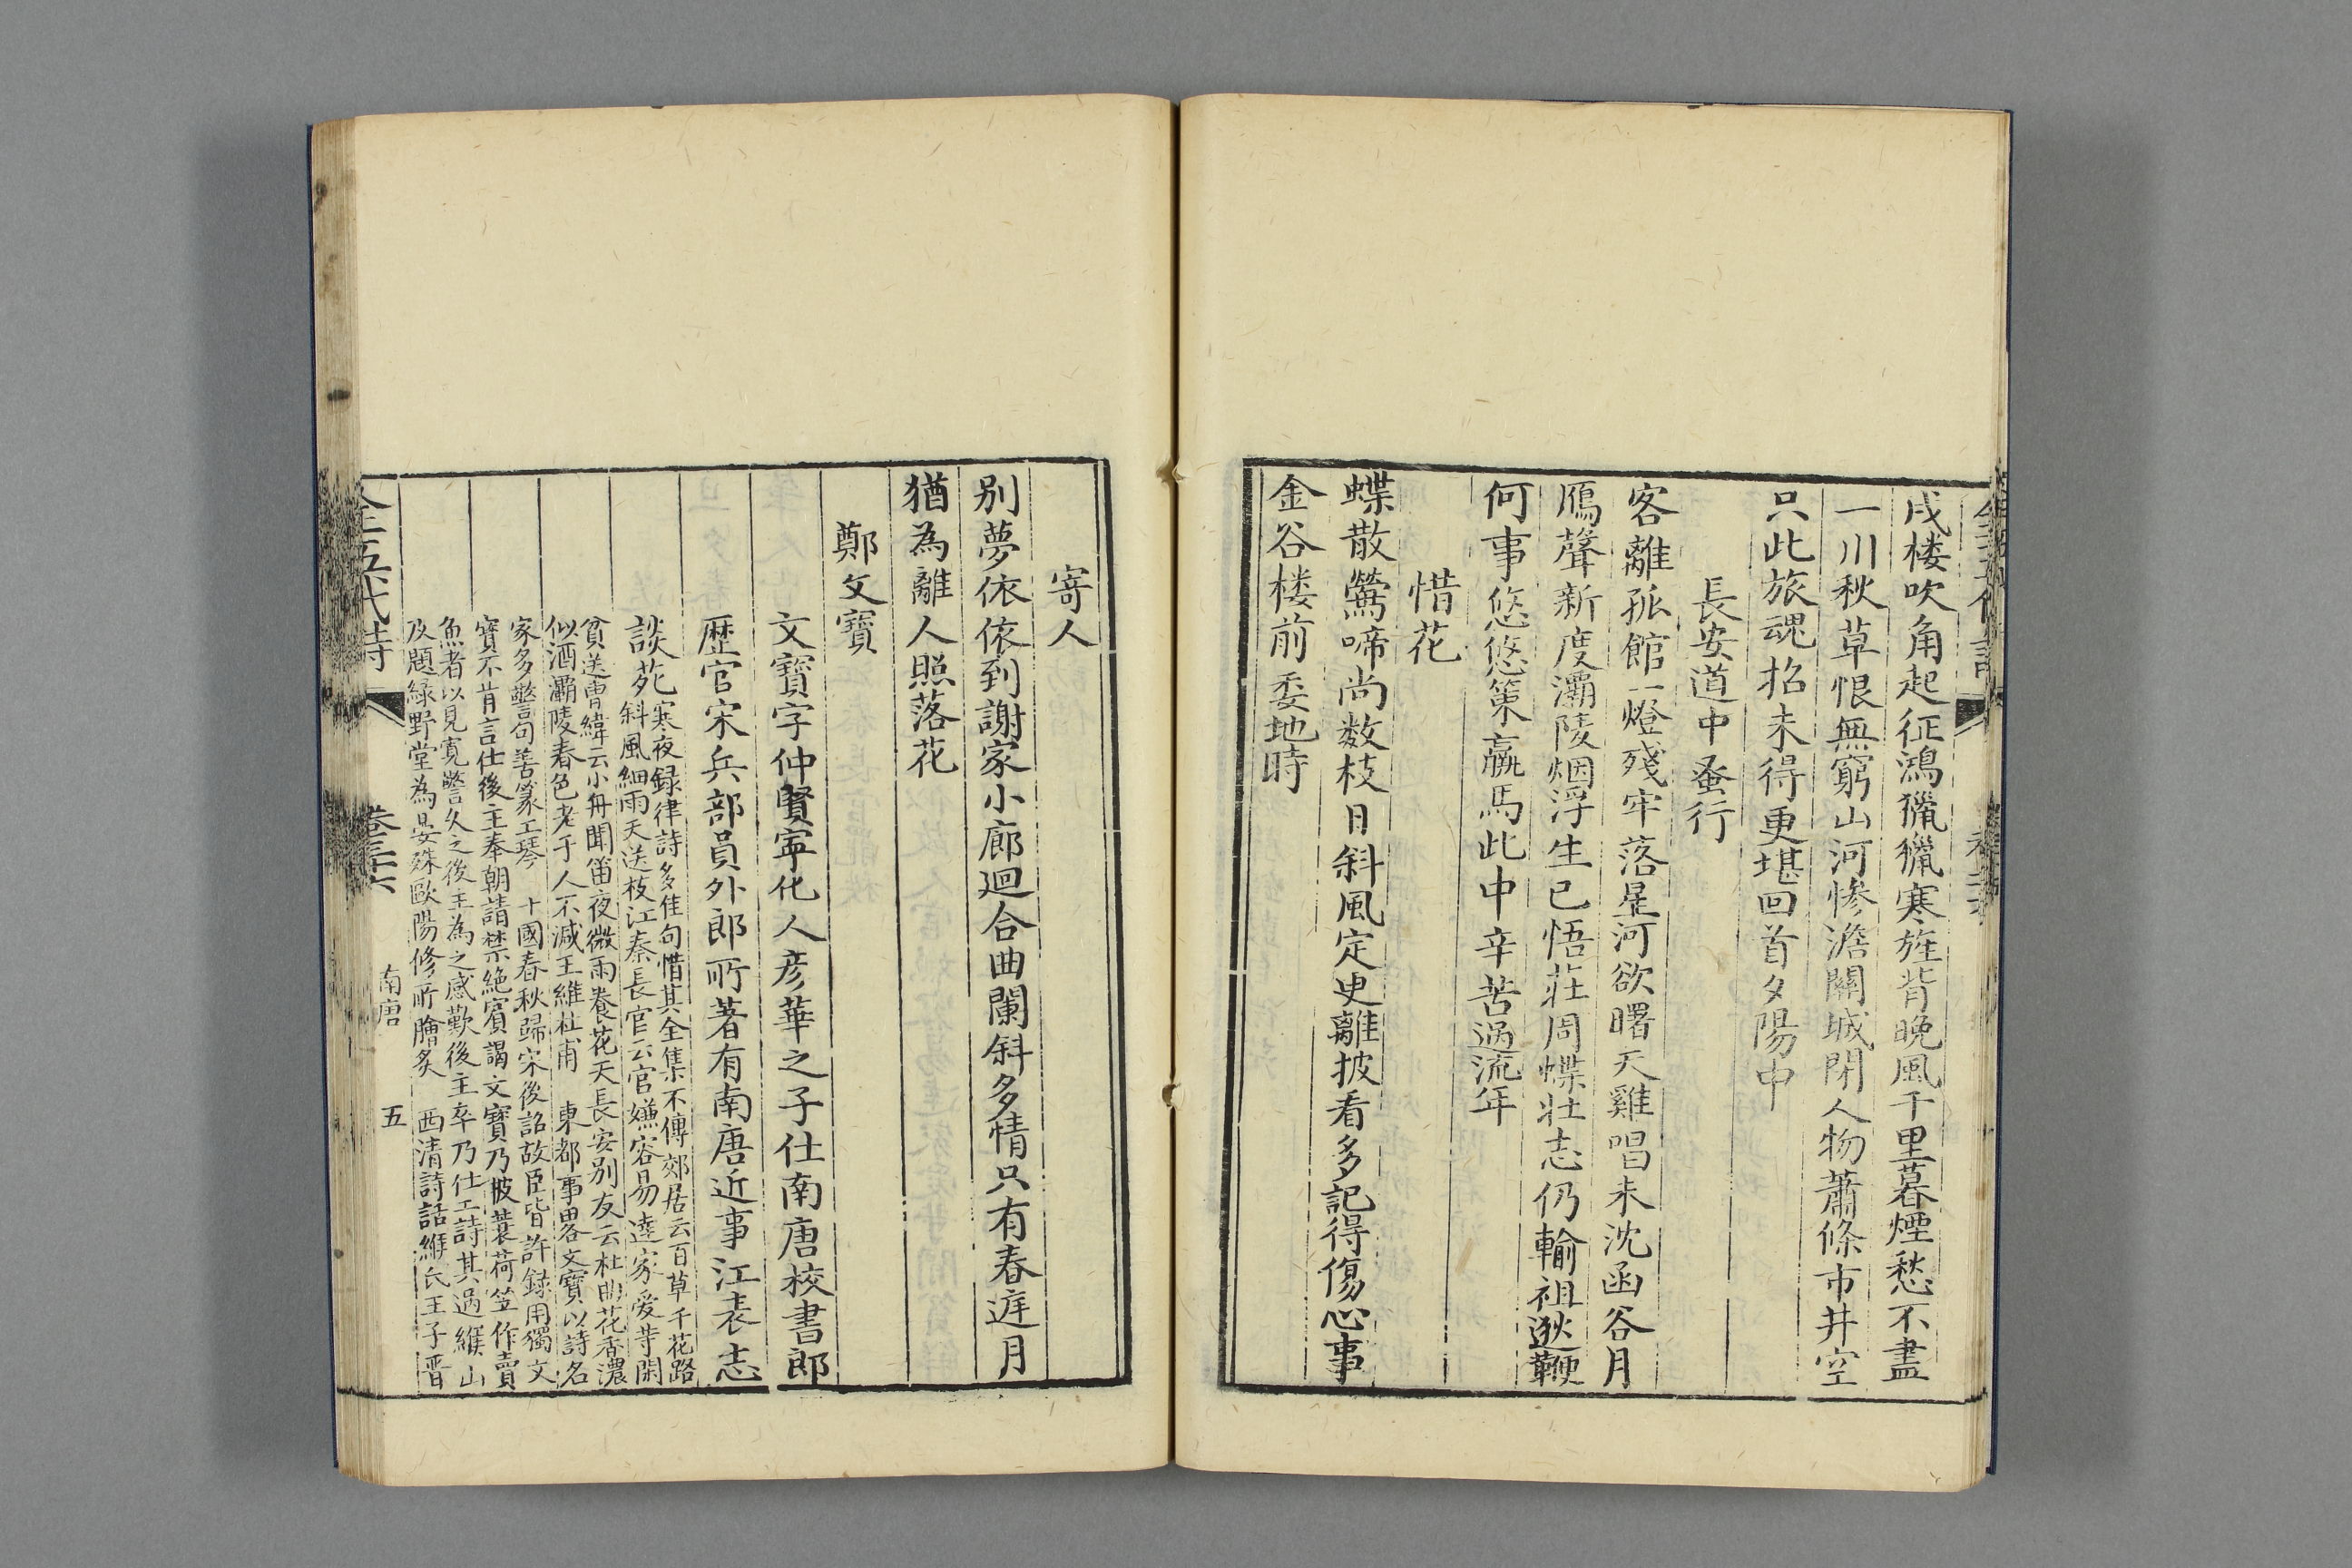 戍楼吹角起征鴻獵獵寒旌背晚風千里暮煙愁不盡
一川秋草恨無窮山河慘澹關城閉人物蕭條市井空
只此旅魂招未得更堪回首夕陽中
長安道中蚤行
客離孤館一燈殘牢落星河欲曙天雞唱未沈函谷月
鴈聲新度灞陵烟浮生已悟莊周蝶壯志仍輸祖逖鞭
何事悠悠策羸馬此中辛苦過流年
惜花
蝶散鶯啼尚数枝日斜風定更離披看多記得傷心事
金谷楼前委地時
寄人
別夢依依到謝家小廊迴合曲闌斜多情只有春庭月
猶為離人照落花
鄭文寶
文寶字仲賢寧化人彦華之子仕南唐校書郎
歴官宋兵部員外郎所著有南唐近事江表志
談苑
寒夜録律詩多佳句惜其全集不傳郊居云百草千花路
斜風細雨天送枝江秦長官云官嫌容易達家愛等閑
貧送曹緯云小舟聞笛夜微雨養花天長安別友云杜曲花香濃
似酒灞陵春色老于人不減王維杜甫 東都事畧文寶以詩名
家多警句善篆工琴 十國春秋歸宋後詔故臣皆許録用獨文
寶不肯言仕後主奉朝請禁絶賓謁文寶乃披蓑荷笠作賣
魚者以見寬譬久之後主為之感歎後主卒乃仕工詩其過緱山
及題緑野堂為晏殊歐陽修所膾炙 西清詩話緱氏王子晋
全五代詩 卷三十六 南唐 五